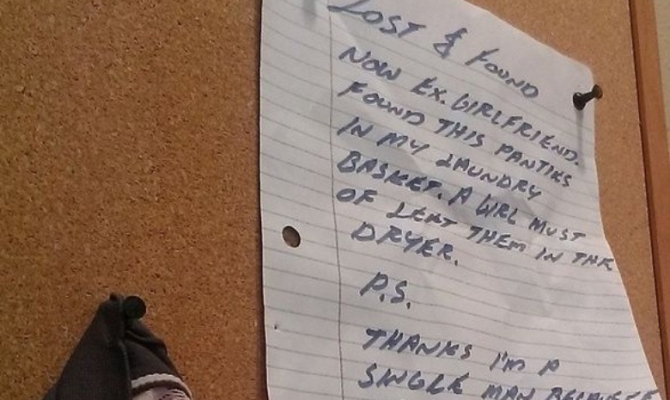 LOST & FOUND
NOW EX. GIRLFRIEND.
FOUND THIS PANTIES
IN MY LAUNDRY
BASKET. A GIRL MUST
OF LEAT THEM IN THE
DRYER.
P.S.
THANKS I'M A
SINGLE MAN BECAUSE